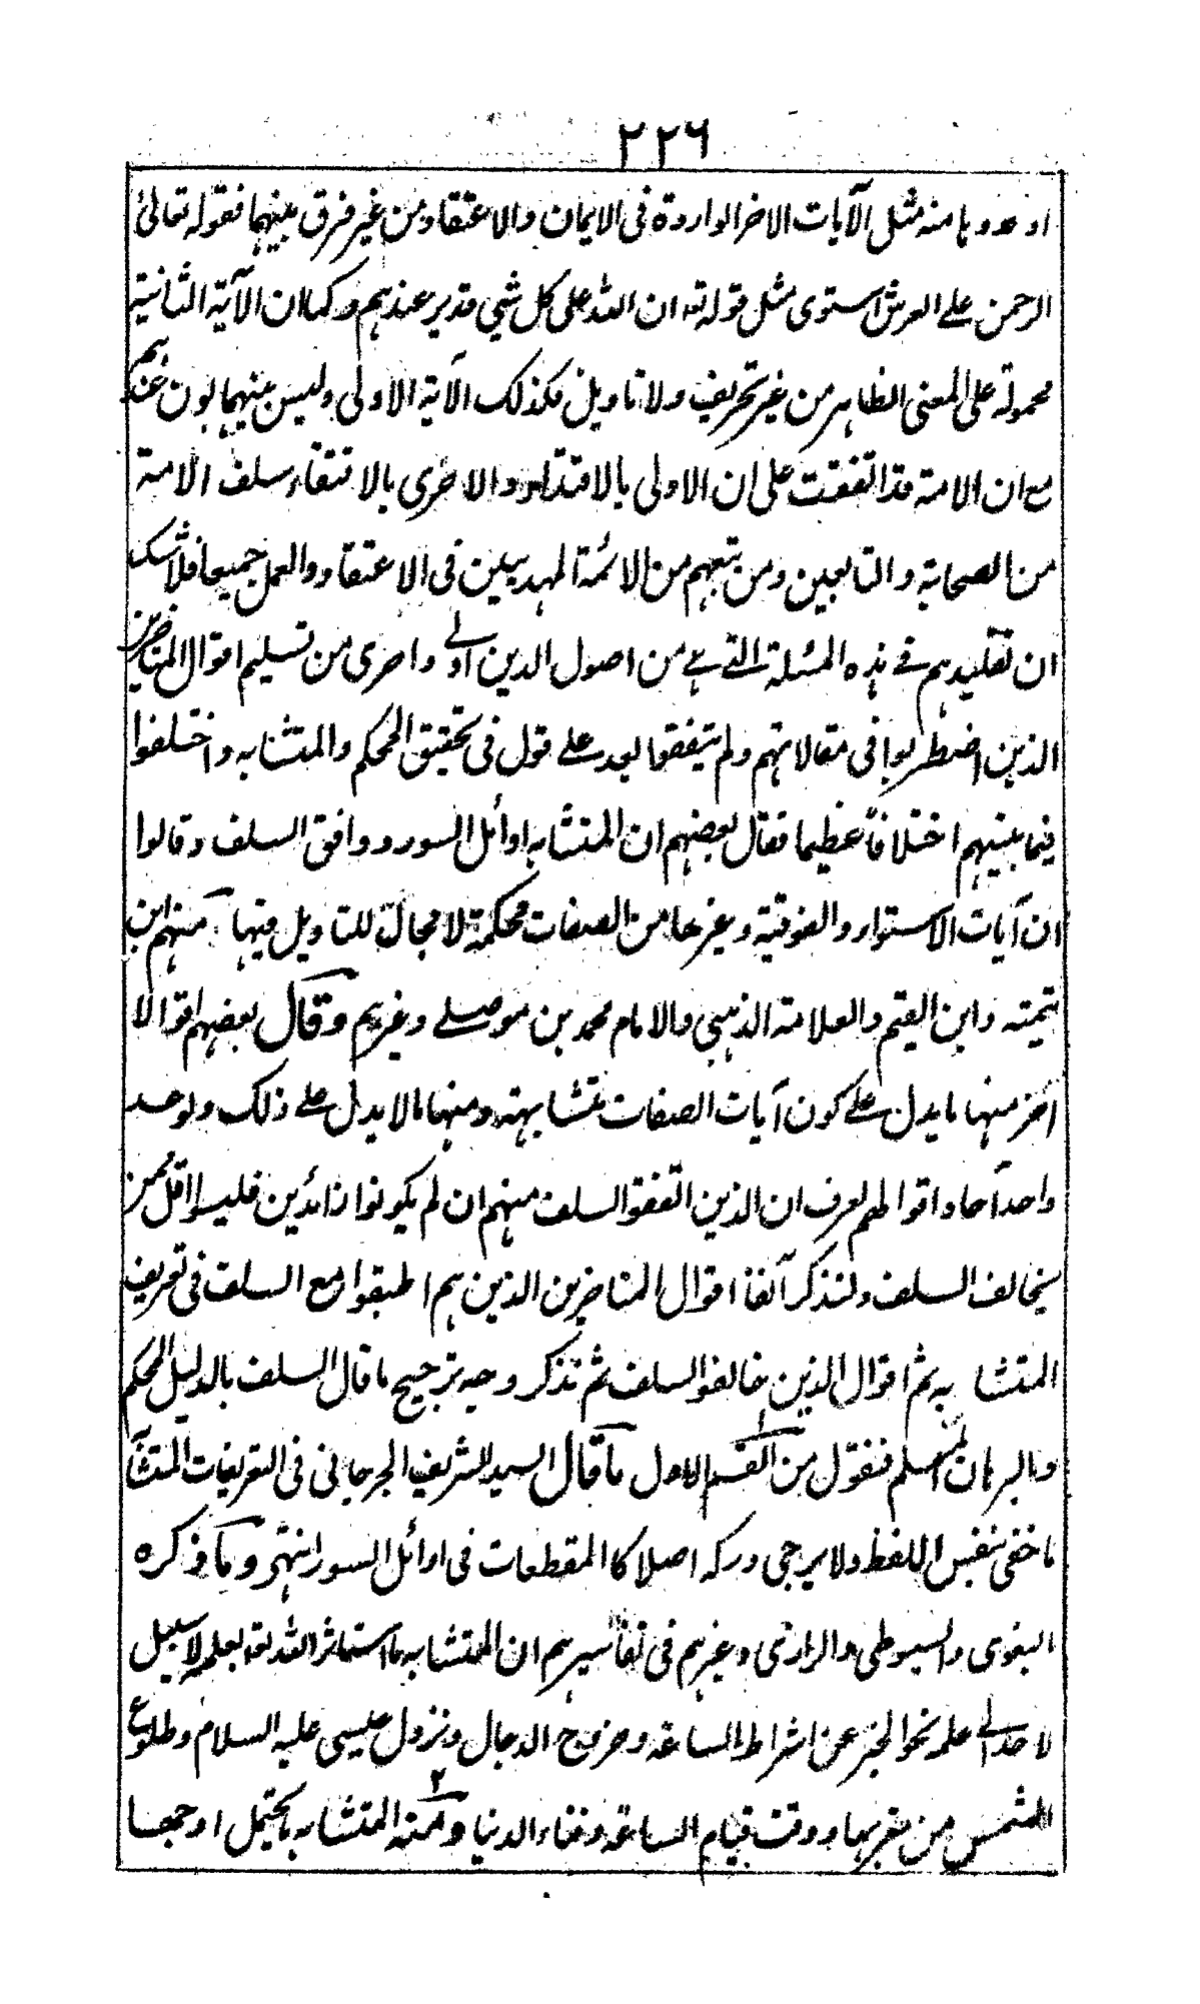 ٢٢٦
او حدوها منه مثل الآيات الاخر الواردة فى الايمان والاعتقاد من غير فرق بينهما فقوله تعالىٰ
الرحمن على العرش استوى مثل قوله تع ان الله على كل شي قدير عندهم وكما ان الآية الثانية
محمولة على المعنى الظاهر من غير تحريف ولا تاويل فكذلك الآية الاولى وليس بينهما بون عندهم
مع ان الامة قد اتفقت على ان الاولى بالاقتداء والاحرى بالاقتفاء سلف الامة
من الصحابة والتابعين ومن تبعهم من الائمة المهديين فى الاعتقاد والعمل جميعا فلا شك
ان تقليدهم فى هذه المسئلة التى هى من اصول الدين اولى واحرى من تسليم اقوال المتاخرين
الذين اضطربوا فى مقالاتهم ولم يتفقوا بعد على قول فى تحقيق المحكم والمتشابه واختلفوا
فيما بينهم اختلافاً عظيما فقال بعضهم ان المتشابه اوائل السور ووافق السلف وقالوا
ان آيات الاستواء والفوقية وغيرها من الصفات محكمة لا مجال للتاويل فيها منهم ابن
تيمية وابن القيم والعلامة الذهبي والامام محمد بن موصلى وغيرهم وقال بعضهم اقوالا
اخر منها ما يدل على كون آيات الصفات متشابهة ومنها ما لا يدل على ذلك ولو عد
واحد آحاد اقوالهم لعرف ان الذين اتفقوا السلف منهم ان لم يكونوا زائدين فليسوا اقل ممن
يخالف السلف ولنذكر آنفا اقوال المتاخرين الذين هم اطبقوا مع السلف فى تعريف
المتشابه ثم اقوال الذين خالفوا السلف ثم نذكر وجه ترجيح ما قال السلف بالدليل المحكم
وبالبرهان المسلم فنقول من القسم الاول ١ ما قال السيد الشريف الجرجانى فى التعريفات المتشابه
ما خفى بنفس اللفظ ولا يرجى دركه اصلا كالمقطعات فى اوائل السور انتهى وما ذكره
البغوى والسيوطى والرازى وغيرهم فى تفاسيرهم ان المتشابه ما استاثر الله تع بعلمه لا سبيل
لاحد الى علمه نحو الخبر عن اشراط الساعة وخروج الدجال ونزول عيسى عليه السلام وطلوع
الشمس من مغربها ووقت قيام الساعة وفناء الدنيا ٢ ومنه المتشابه ما يحتمل اوجها